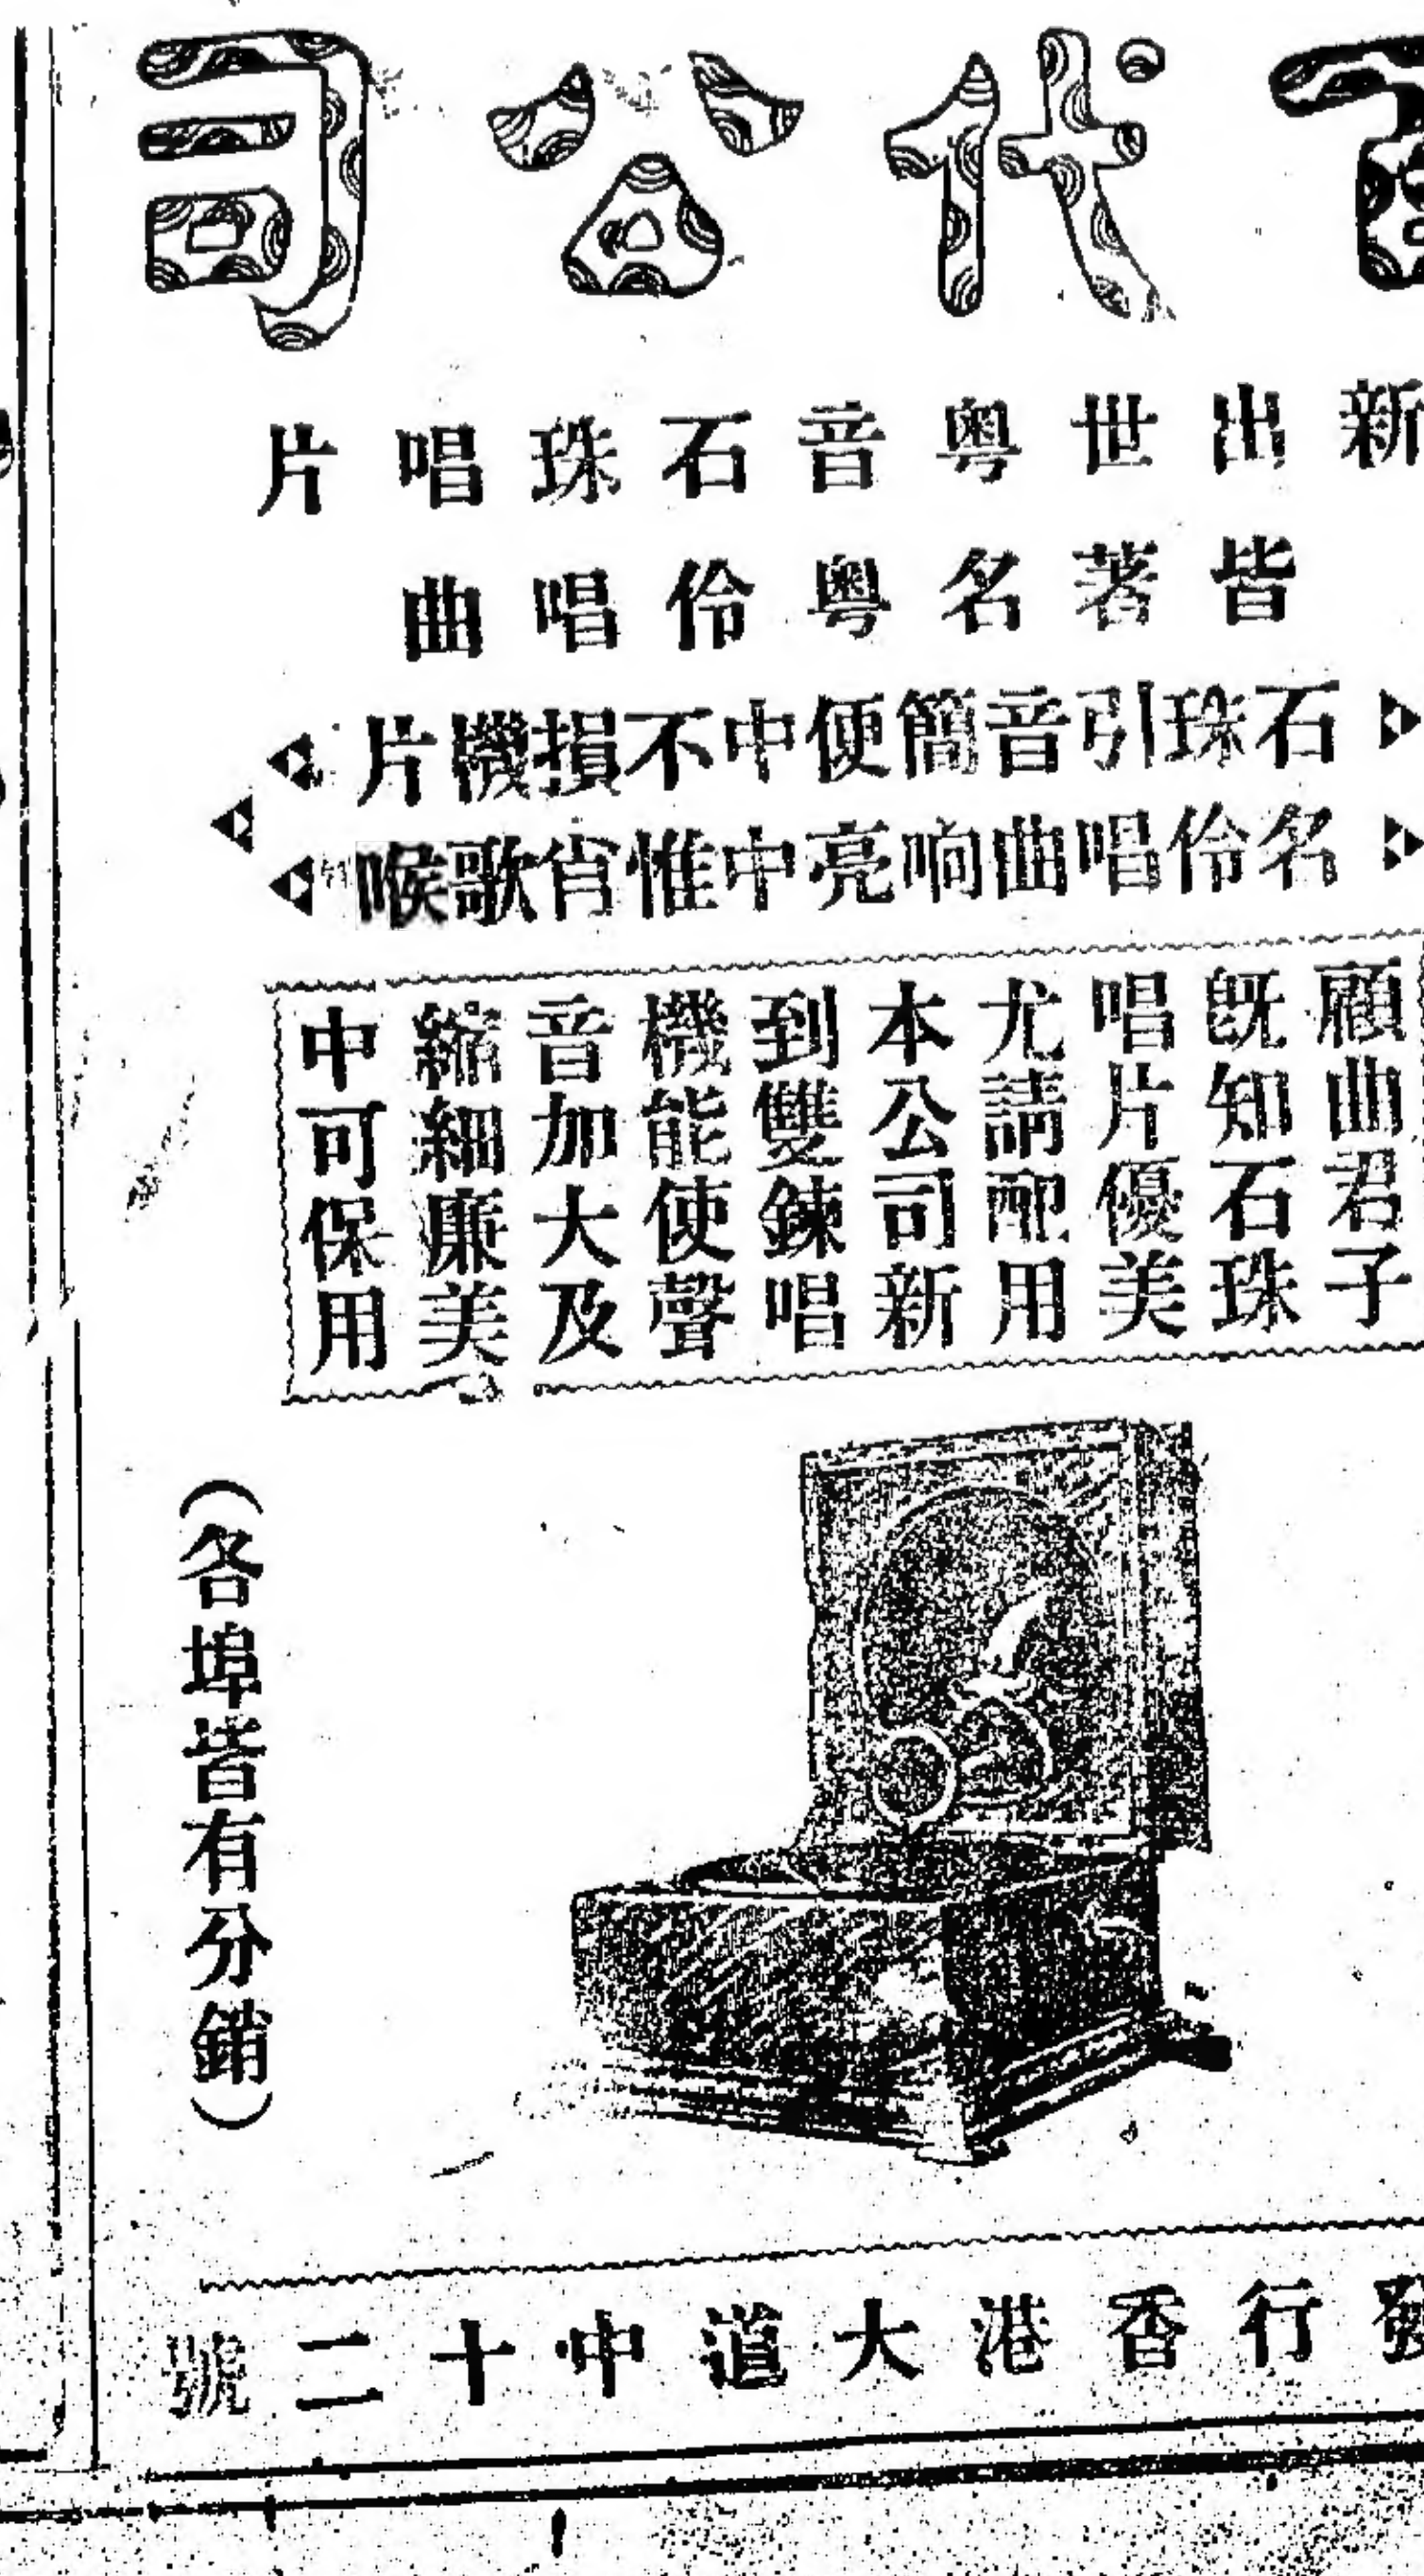 代公司
新出世粤音石珠唱片
皆著名粤伶唱曲
石珠引音簡便中不損機片
名伶唱曲响亮中惟肖歌喉
顧曲君子
既知石珠
唱片優美
尤請配用
本公司新
到雙鍊唱
機能使聲
音加大及
縮細廉美
中可保用
(各埠皆有分銷)
發行香港大道中十二號